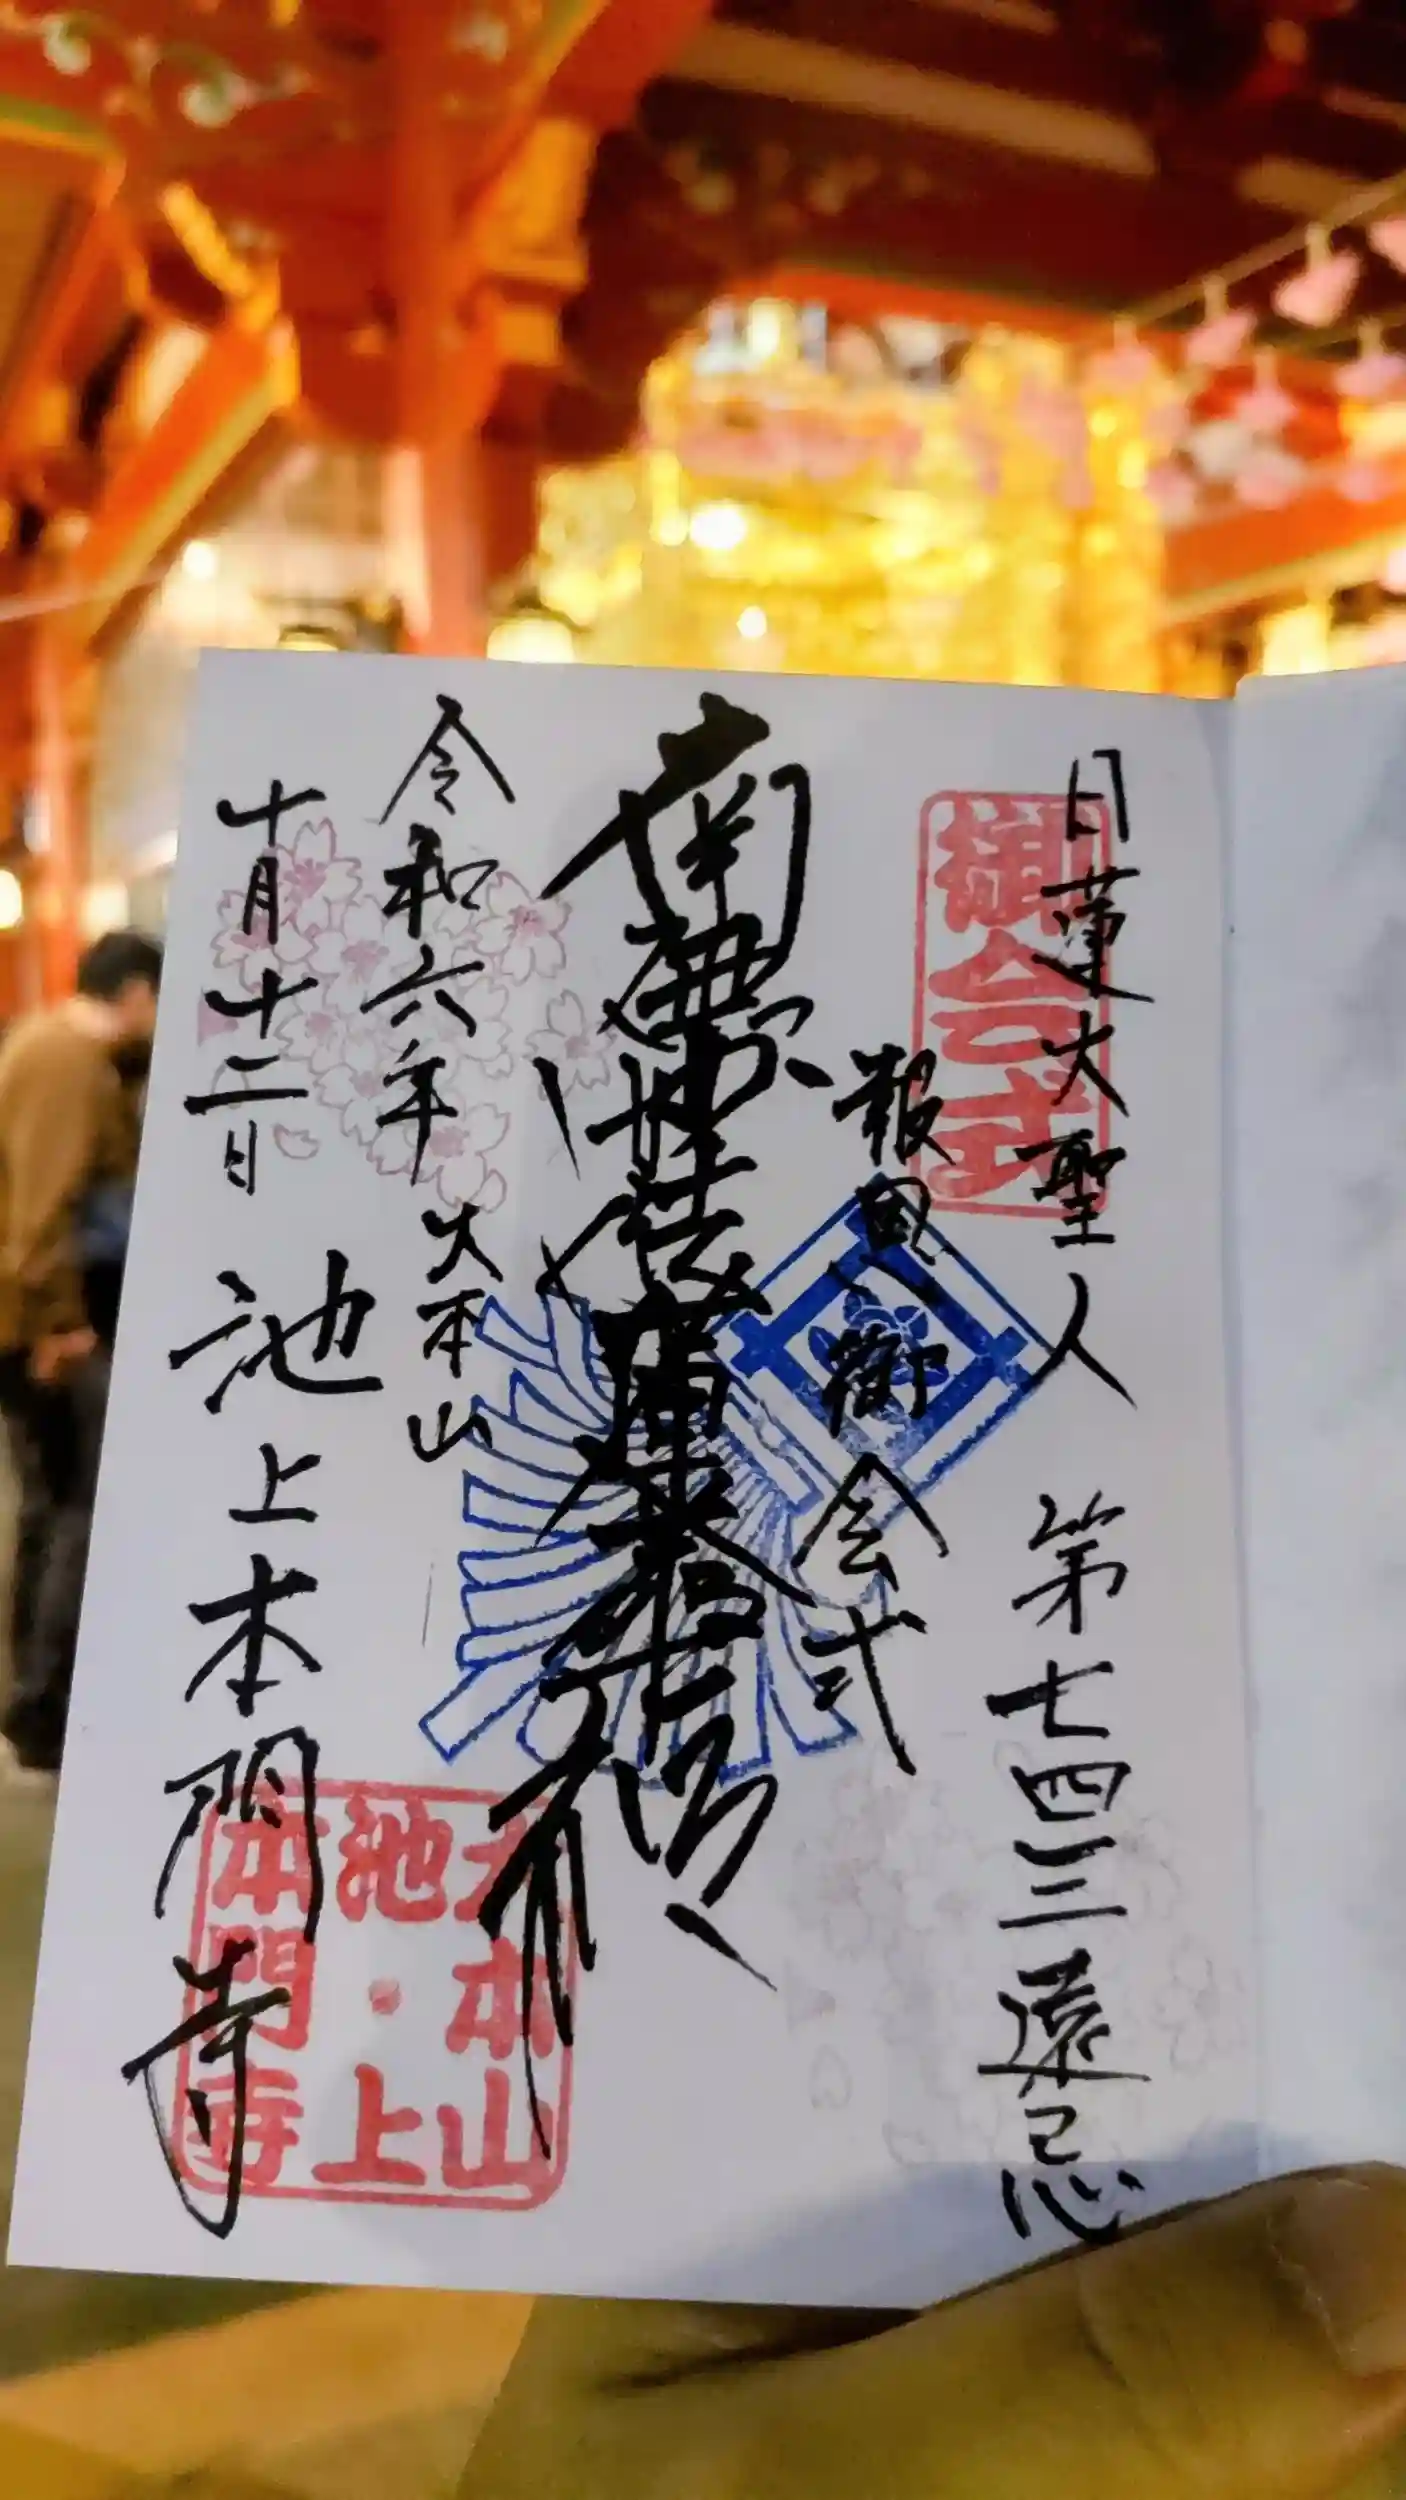 日蓮大聖人 第七四三遠忌
報恩 御会式
御会式
南無妙法蓮華経
令和六年
十月十二日
大本山
池上本門寺
大本山
池・上
本門寺